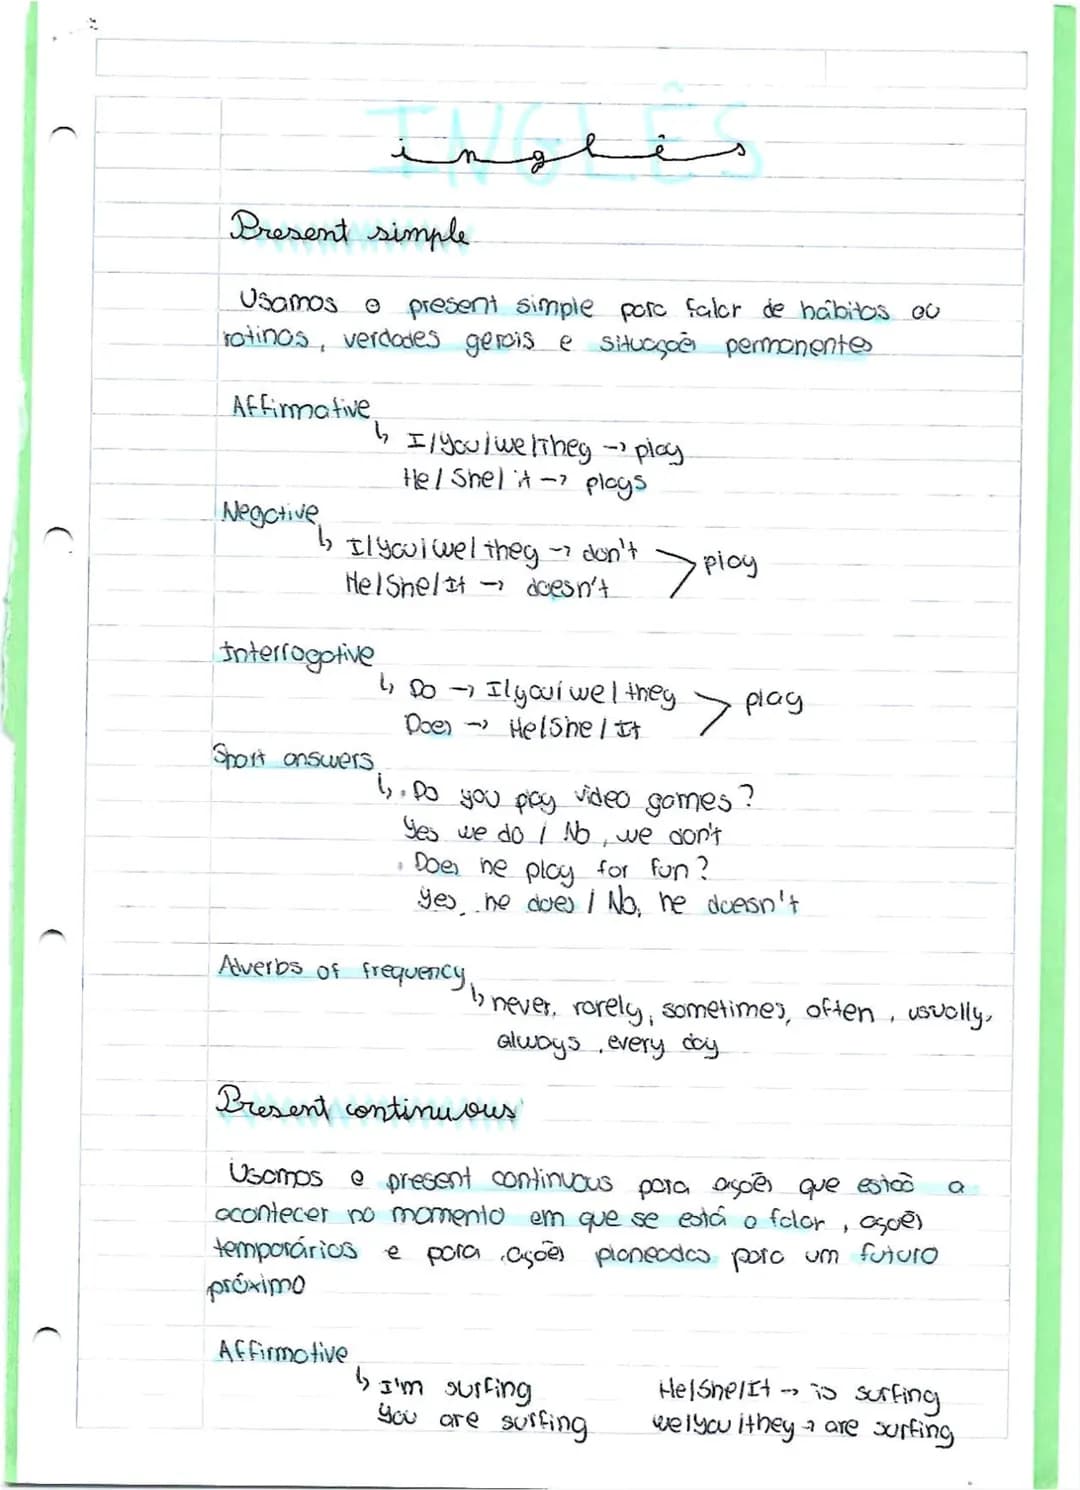 INGLÊS
inglês
Present simple
Usamos o present simple para falar de hábitos ou
rotinas, verdades gerais e situações permanentes
Affirmative
↳ I/You/we/They → play
He/She/it → plays
Negative
↳ I/you/we/they → don't > play
He/She/It → doesn't
Interrogative
↳ Do → I/you/we/they > play
Does → He/She/It
Short answers
↳ • Do you play video games?
Yes we do / No, we don't
• Does he play for fun?
Yes, he does / No, he doesn't
Adverbs of frequency
↳ never, rarely, sometimes, often, usually,
always, every day
Present continuous
Usamos o present continuous para ações que estão a
acontecer no momento em que se está a falar, ações
temporários e para ações planeadas para um futuro
próximo
Affirmative
↳ I'm surfing He/She/It → is surfing
You are surfing we/you/they → are surfing